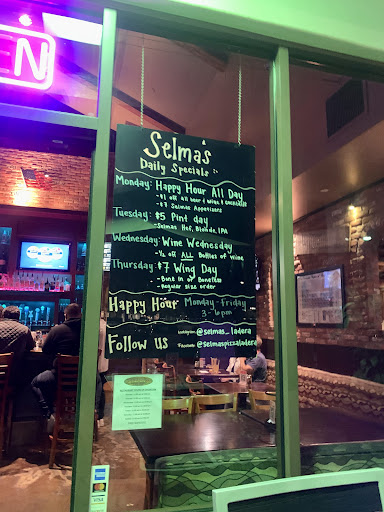 EN
Selma's
Daily Specials:
Monday: Happy Hour All Day
- $1 off all beer & wine & cocktails
- $7 Selmas Appetizers
Tuesday: $5 Pint day
- Selmas Hef, Blonde, IPA
Wednesday: Wine Wednesday
- ½ off ALL Bottles of wine
Thursday: $7 Wing Day
- Bone in or Boneless
- Regular size order
Happy Hour Monday-Friday
3-6pm
Follow us
Instagram: @selmas_ladera
Facebook: @selmaspizzaladera
VISA